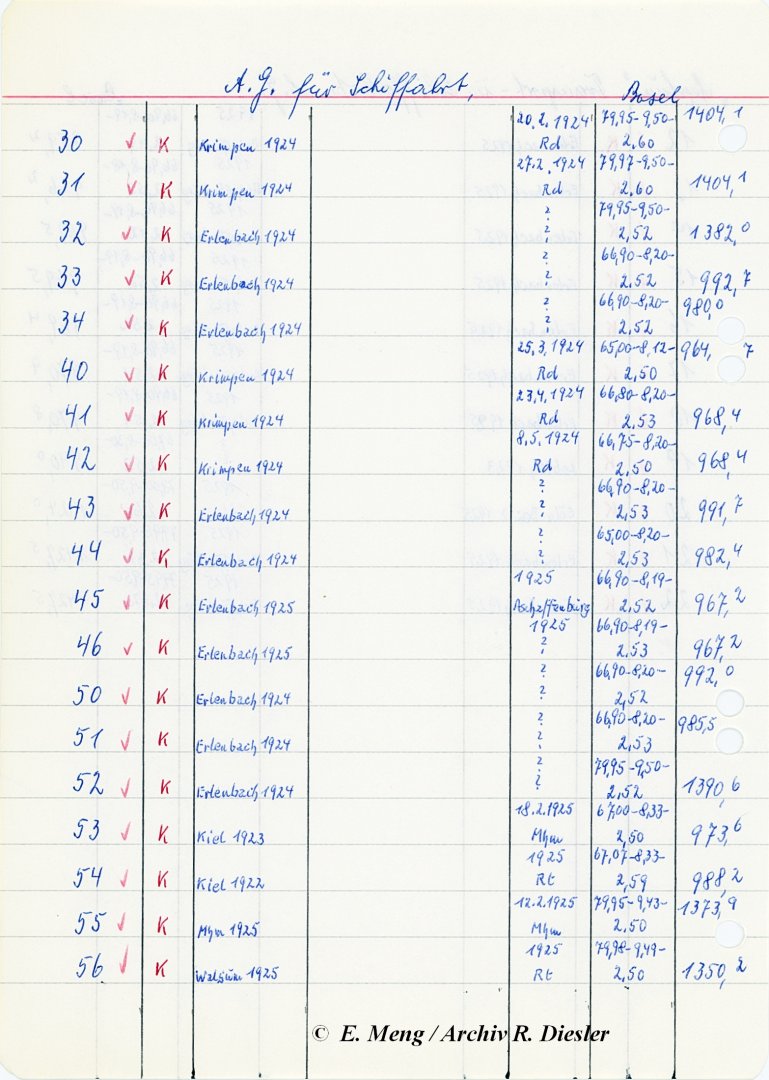 A.G. für Schiffahrt, Basel
20.2.1924 79,95-9,50- 1404,1
30 ✓ K Krimpen 1924 Rd 2.60
27.2.1924 79,97-9,50-
31 ✓ K Krimpen 1924 Rd 2.60 1404,1
? 79,95-9,50-
32 ✓ K Erlenbach 1924 ? 2,52 1382,0
? 66,90-8,20-
33 ✓ K Erlenbach 1924 ? 2,52 992,7
? 66,90-8,20- 980,0
34 ✓ K Erlenbach 1924 ? 2,52
25.3.1924 65,00-8,12- 964,7
40 ✓ K Krimpen 1924 Rd 2,50
23.4.1924 66,80-8,20-
41 ✓ K Krimpen 1924 Rd 2,53 968,4
8.5.1924 66,75-8,20-
42 ✓ K Krimpen 1924 Rd 2,50 968,4
? 66,90-8,20-
43 ✓ K Erlenbach 1924 ? 2,53 991,7
? 65,00-8,20-
44 ✓ K Erlenbach 1924 ? 2,53 982,4
1925 66,90-8,19-
45 ✓ K Erlenbach 1925 Aschaffenburg 2,52 967,2
1925 66,90-8,19-
46 ✓ K Erlenbach 1925 ? 2.53 967,2
? 66,90-8,20- 992,0
50 ✓ K Erlenbach 1924 ? 2,52
? 66,90-8,20- 985,5
51 ✓ K Erlenbach 1924 ? 2,53
? 79,95-9,50-
52 ✓ K Erlenbach 1924 ? 2,52 1390,6
18.2.1925 67,00-8,33-
53 ✓ K Kiel 1923 Mhm 2,50 973,6
1925 67,07-8,33-
54 ✓ K Kiel 1922 Rt 2,59 988,2
12.2.1925 79,95-9,43- 1373,9
55 ✓ K Mhm 1925 Mhm 2.50
1925 79,98-9,49-
56 ✓ K Walsum 1925 Rt 2,50 1350,2
© E. Meng / Archiv R. Diesler